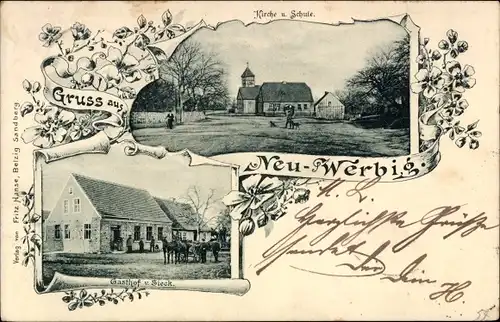 Kirche u. Schule.
Gruss aus
Neu-Werbig
Verlag von Fritz Hanse, Belzig Sandberg
Gasthof v. Sieck.
Herzlichste Grüsse
sendet Dir Dein
H.